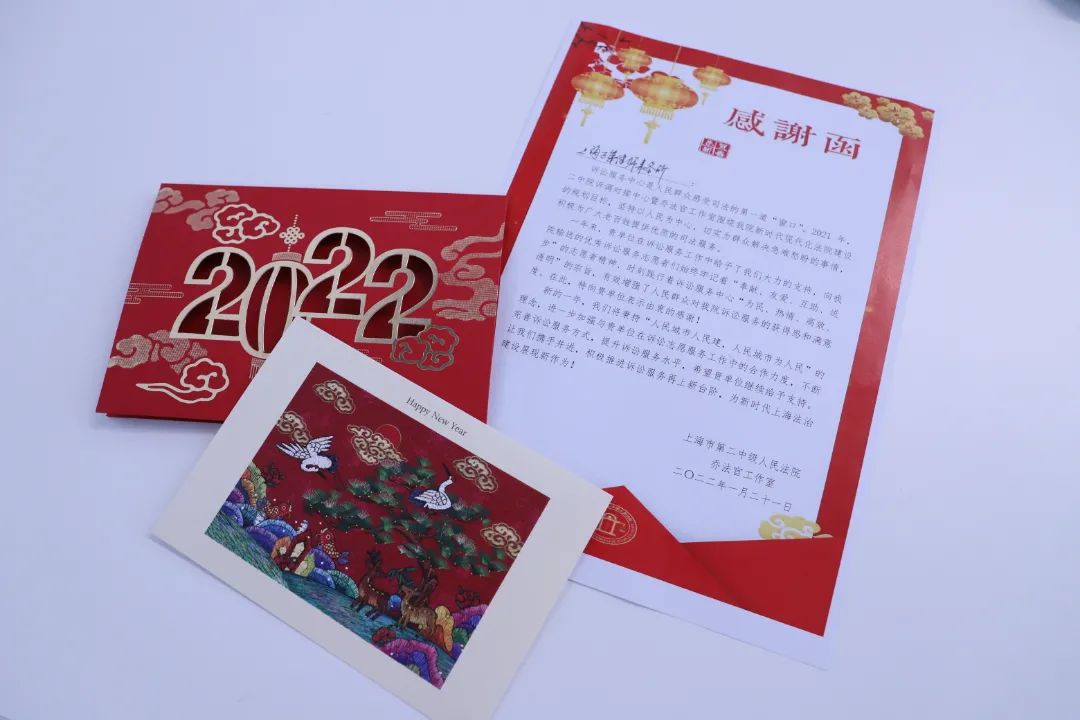 2022
Happy New Year
感謝函
上海
诉讼服务中心是人民群众感受司法的第一道“窗口”，2021年，
二中院诉调对接中心暨乔法官工作室围绕我院新时代现代化法院建设
的规划目标，坚持以人民为中心，切实为群众解决急难愁盼的事情，
积极为广大老百姓提供优质的司法服务。
一年来，贵单位在诉讼服务工作中给予了我们大力的支持，向我
院输送的优秀诉讼服务志愿者们始终牢记着“奉献、友爱、互助、进
步”的志愿者精神，时刻践行着诉讼服务中心“为民、热情、高效、
透明”的宗旨，有效增强了人民群众对我院诉讼服务的获得感和满意
度。在此，特向贵单位表示由衷的感谢！
新的一年，我们将秉持“人民城市人民建，人民城市为人民”的
理念，进一步加强与贵单位在诉讼志愿服务工作中的合作力度，不断
完善诉讼服务方式，提升诉讼服务水平，希望贵单位继续给予支持。
让我们携手并进，积极推进诉讼服务再上新台阶，为新时代上海法治
建设展现新作为！
上海市第二中级人民法院
乔法官工作室
二〇二二年一月二十一日